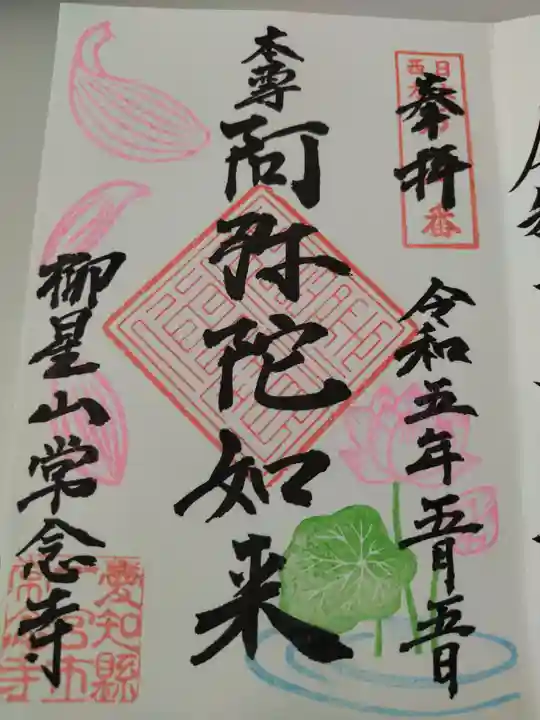 奉拝
令和五年五月五日
本尊
阿弥陀如来
柳星山常念寺
愛知縣
一宮市
常念寺